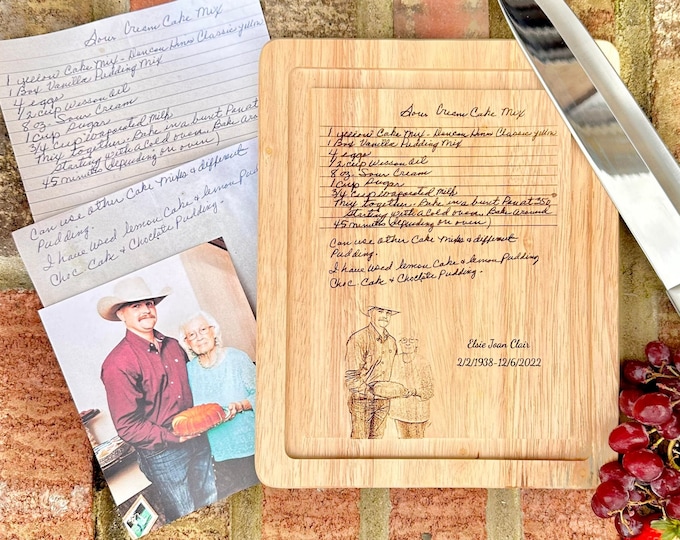 Sour Cream Cake Mix
1 yellow Cake Mix - Duncan Hines Classic yellow
1 Box Vanilla Pudding Mix
4 eggs
1/2 cup Wesson Oil
8 oz. Sour Cream
1 Cup Sugar
3/4 Cup Evaporated Milk
Mix together. Bake in a bunt Pan at
Starting with a cold oven. Bake Around
45 minutes (depending on oven)
Can use other Cake Mixes & different
Pudding.
I have used lemon Cake & lemon Pudding
Choc Cake & Choclate Pudding.
Sour Cream Cake Mix
1 yellow Cake Mix - Duncan Hines Classic yellow
1 Box Vanilla Pudding Mix
4 eggs
1/2 cup Wesson Oil
8 oz. Sour Cream
1 Cup Sugar
3/4 Cup Evaporated Milk
Mix together. Bake in a bunt Pan at 350,
Starting with a cold oven. Bake Around
45 minutes (depending on oven)
Can use other Cake Mixes & different
Pudding.
I have used lemon Cake & lemon Pudding,
Choc Cake & Choclate Pudding.
Elsie Joan Clair
2/2/1938-12/6/2022